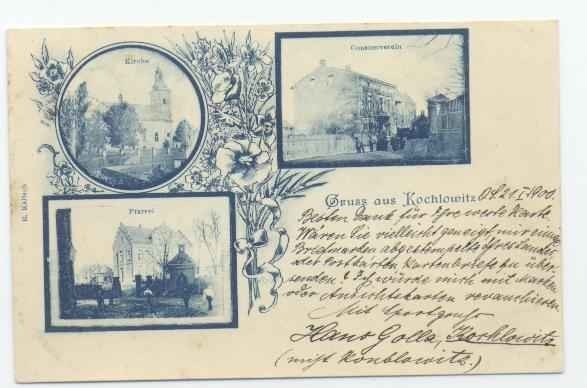 Kirche
Consumverein
Pfarrei
Gruss aus Kochlowitz O/S 21/I 1900.
Besten Dank für Ihre werte Karte.
Wären Sie vielleicht geneigt mir einige
Briefmarken abgestempelte Ihres Landes
oder Postkarten Kartenbriefe zu über-
senden? Ich würde mich mit Marken
oder Ansichtskarten revanchieren.
Mit Sportgruß
Hans Golla, Kochlowitz
(nicht Konblowitz.)